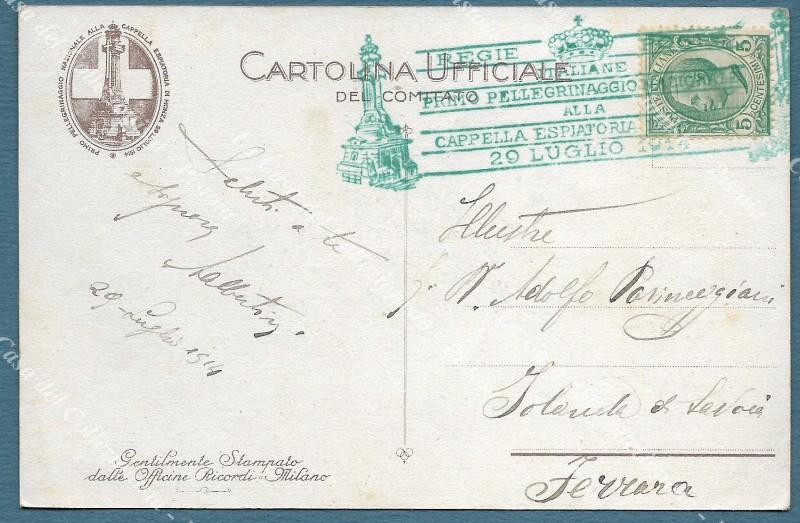 PRIMO PELLEGRINAGGIO NAZIONALE ALLA CAPPELLA ESPIATORIA DI MONZA 29 LUGLIO 1914
CARTOLINA UFFICIALE
DEL COMITATO
REGIE
ITALIANE
PRIMO PELLEGRINAGGIO
ALLA
CAPPELLA ESPIATORIA
29 LUGLIO 1914
POSTE ITALIANE
CENTESIMI 5
5
Saluti a te
e signora
29 Luglio 1914
Illustre
Adolfo
Jolanda di Savoia
Ferrara
Gentilmente Stampato
dalle Officine Ricordi - Milano